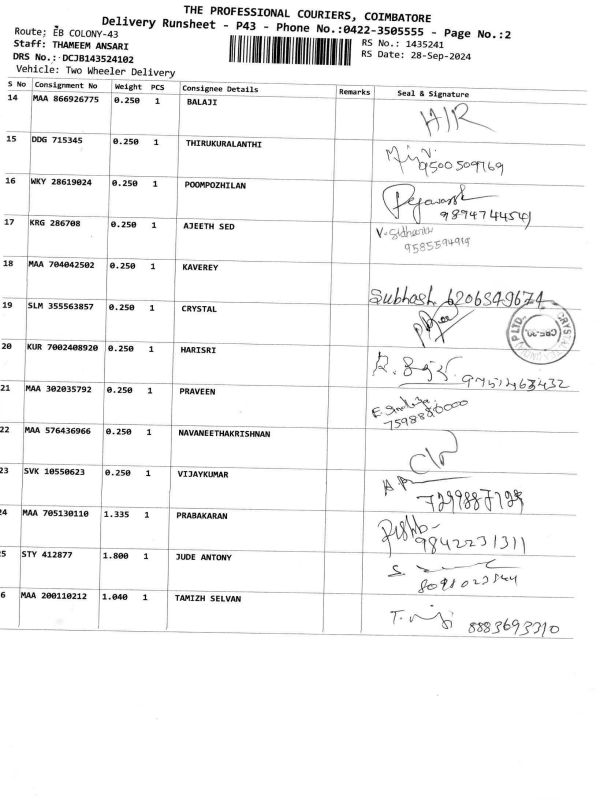 THE PROFESSIONAL COURIERS, COIMBATORE
Delivery Runsheet - P43 - Phone No.:0422-3505555 - Page No.:2
Route: EB COLONY-43
Staff: THAMEEM ANSARI
RS No.: 1435241
DRS No.: DCJB143524102
RS Date: 28-Sep-2024
Vehicle: Two Wheeler Delivery
S No Consignment No Weight PCS Consignee Details Remarks Seal & Signature
14 MAA 866926775 0.250 1 BALAJI
15 DDG 715345 0.250 1 THIRUKURALANTHI
9500509769
16 WKY 28619024 0.250 1 POOMPOZHILAN
9894744541
17 KRG 286708 0.250 1 AJEETH SED
9585594919
18 MAA 704042502 0.250 1 KAVEREY
Subhash 6206349674
19 SLM 355563857 0.250 1 CRYSTAL
CRYSTAL
20 KUR 7002408920 0.250 1 HARISRI
21 MAA 302035792 0.250 1 PRAVEEN
22 MAA 576436966 0.250 1 NAVANEETHAKRISHNAN
23 SVK 10550623 0.250 1 VIJAYKUMAR
24 MAA 705130110 1.335 1 PRABAKARAN
9842231311
25 STY 412877 1.800 1 JUDE ANTONY
26 MAA 200110212 1.040 1 TAMIZH SELVAN
8883693310